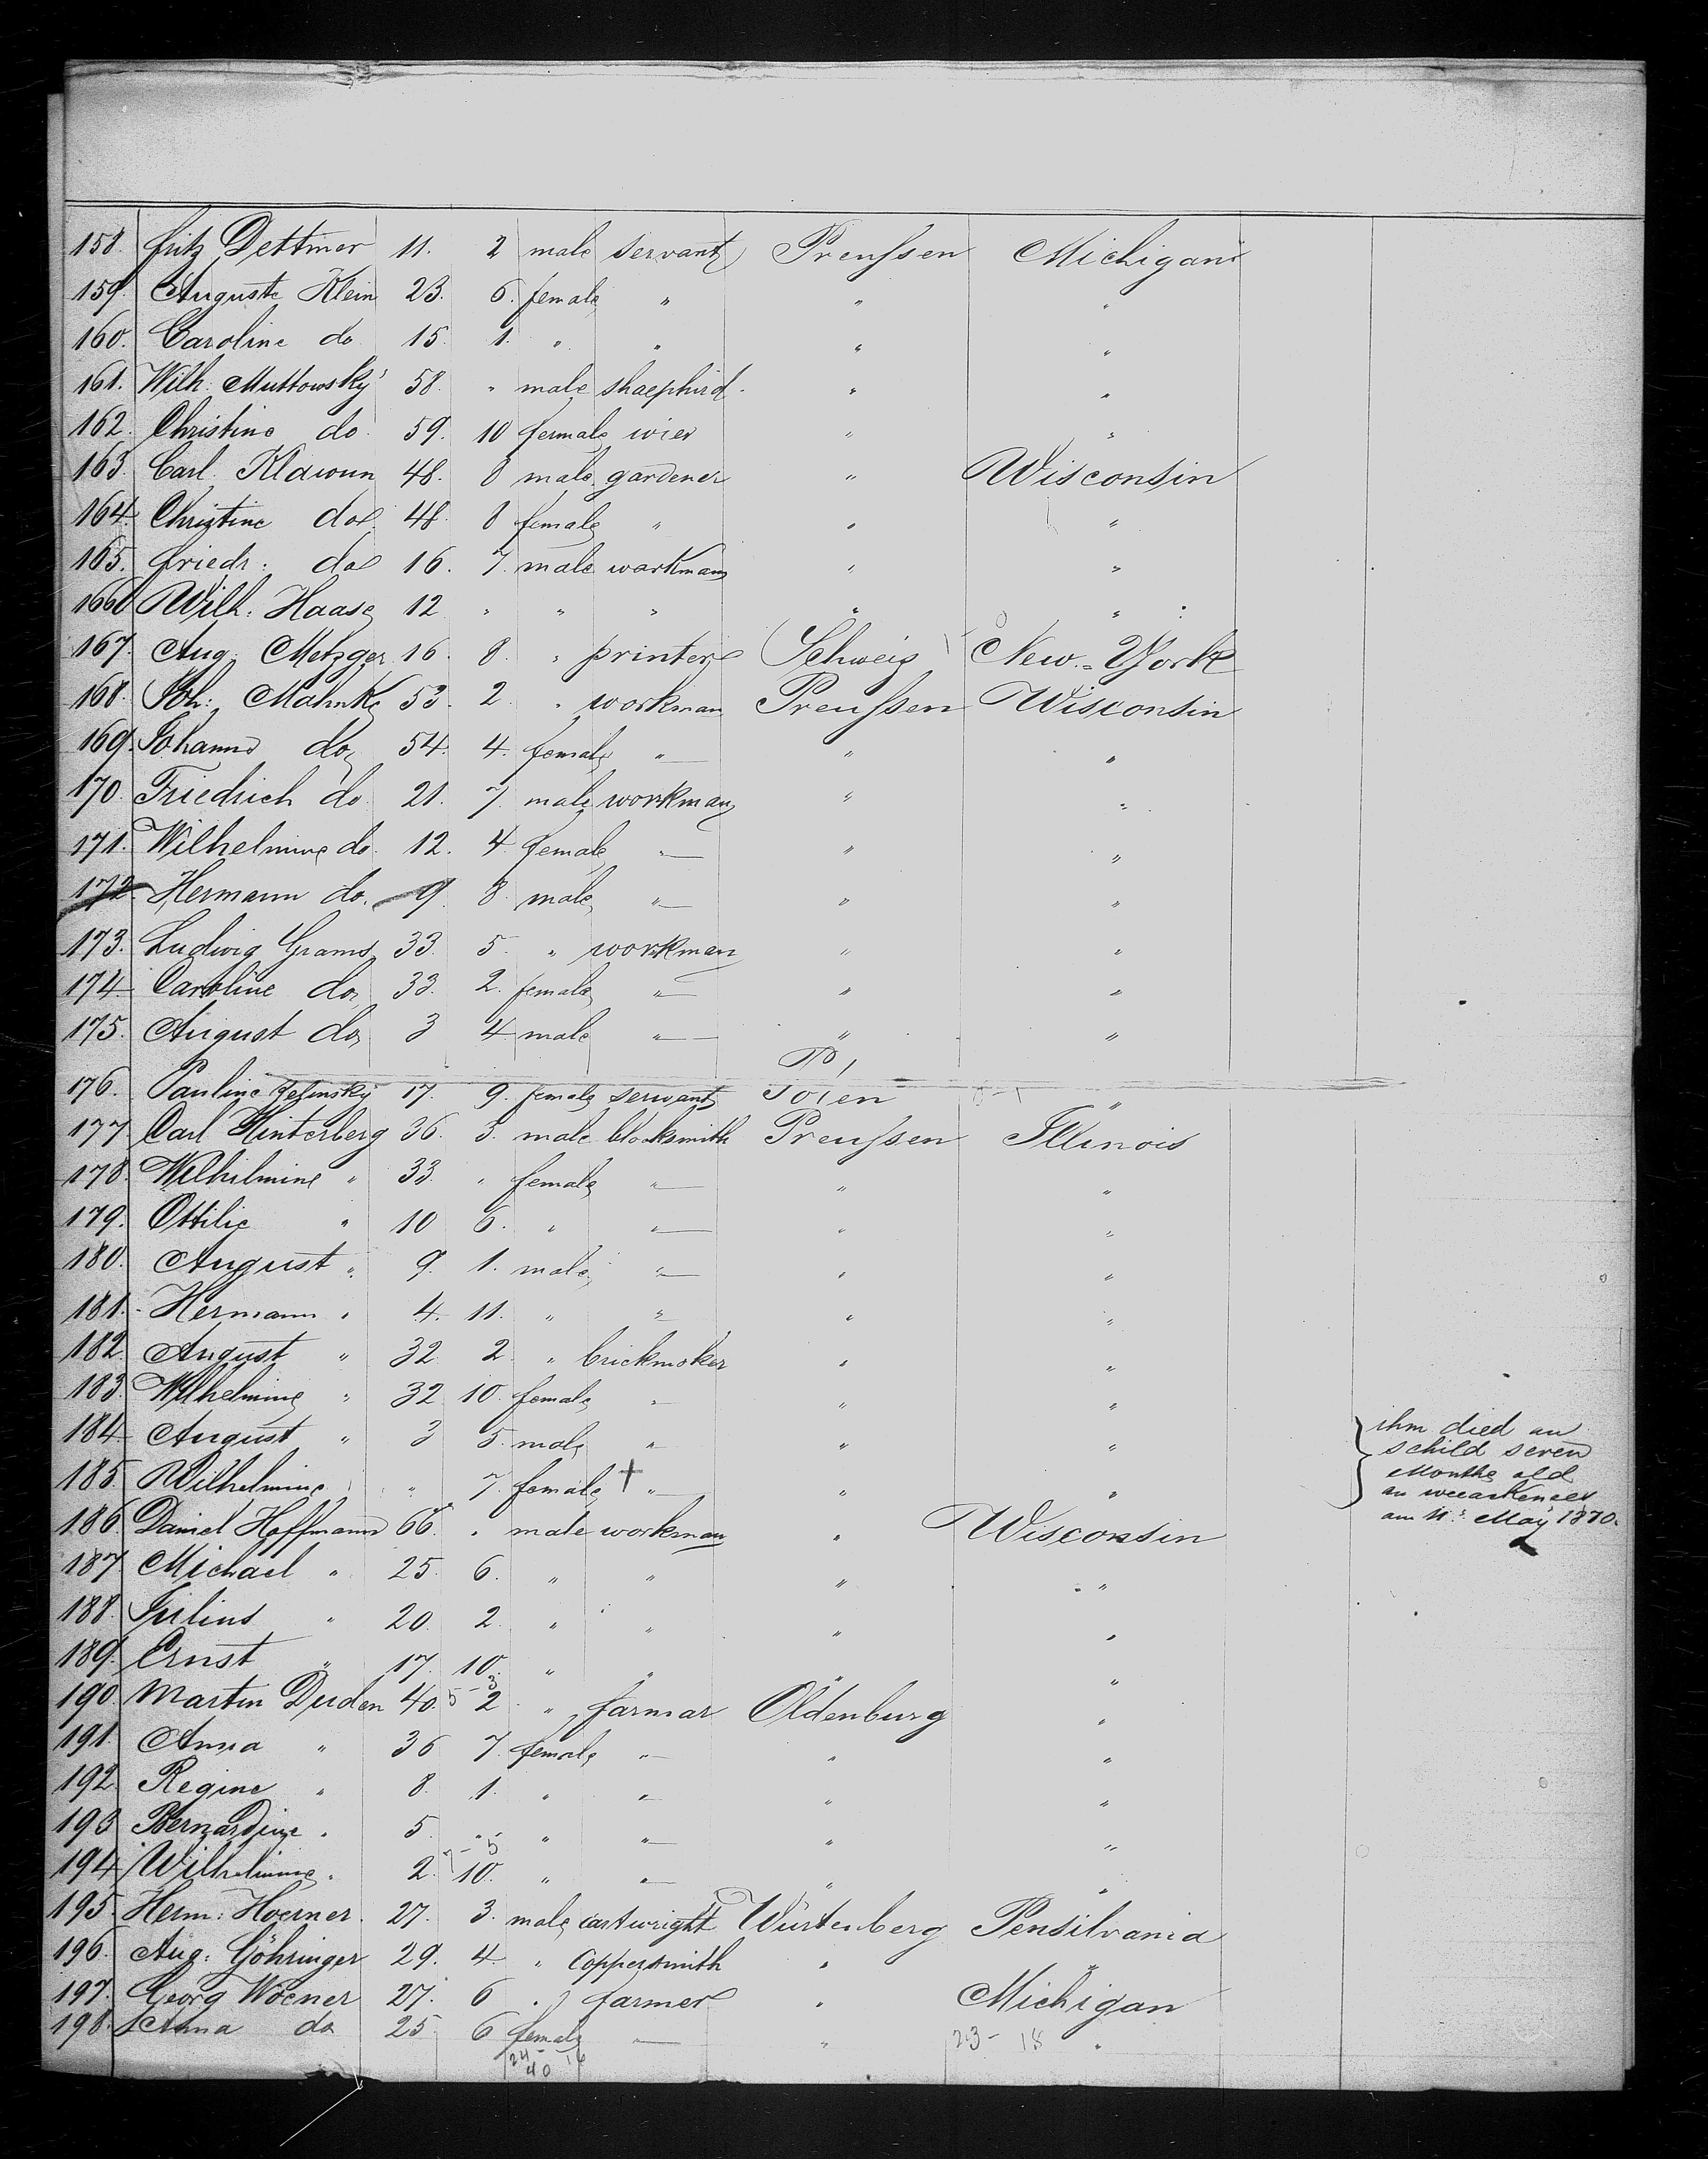 158. Fritz Dettmer 11. 2 male servant Preußen Michigan
159. Auguste Klein 23. 6. female " " "
160. Caroline do 15. 1. " " " "
161. Wilh. Muttowsky 58. " male shaephird. " "
162. Christine do. 59. 10 female " "
163. Carl Klawun 48. 8 male gardener " Wisconsin
164. Christine do. 48. 8 female " " "
165. Friedr: do 16. 7. male workman " "
166 Wilh. Haase 12 " " " " "
167. Aug. Metzger 16. 8. " printer Schweiz New-York
168. Joh: Mahnke 53. 2. " workman Preußen Wisconsin
169. Johanna do 54. 4. female " " "
170. Friedrich do. 21. 7. male workman " "
171. Wilhelmine do. 12. 4 female " " "
172. Hermann do. 9. 8. male " " "
173. Ludwig Grams 33. 5. " workman " "
174. Caroline do 33. 2. female " " "
175. August do 3 4 male " " "
176. Pauline 17. 9. female servant "
177. Carl Hinterberg 36. 3. male blocksmith Preußen Illinois
178. Wilhilmine " 33. " female " " "
179. Ottilie " 10 6. " " " "
180. August " 9. 1. male " " "
181. Hermann " 4. 11. " " " "
182. August " 32. 2. " brickmoker " "
183. Wilhelmine " 32 10. female " " "
184. August " 3 5. male " " " ihm died an
schild seven
Months old
an
am 11: May 1870.
185. Wilhelmine " 7. female † " " "
186. Daniel Hoffmann 66. " male workman " Wisconsin
187. Michael " 25. 6. " " " "
188. Julius " 20. 2. " " " "
189. Ernst " 17. 10. " " " "
190. Martin Duden 40. 2 " farmar Oldenburg "
191. Anna " 36 7. female " " "
192. Regine " 8. 1. " " " "
193 Bernardine " 5. " " " " "
194 Wilhelmine " 2. 10. " " " "
195. Herm: Hoerner. 27. 3. male cartwright Würtenberg Pensilvania
196. Aug: Göhringer 29. 4. " Coppersmith " "
197. Georg Woener 27. 6 " farmer " Michigan
198. Anna do 25. 6 female " "
23- 18
24- 16
40